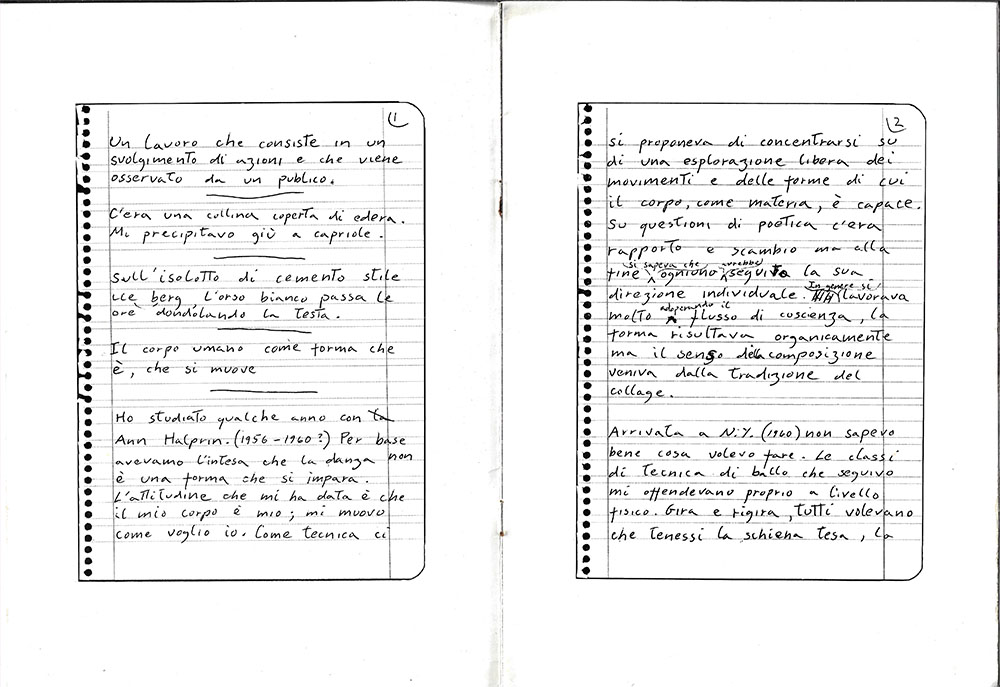 1
Un lavoro che consiste in un
svolgimento di azioni e che viene
osservato da un publico.
C'era una collina coperta di edera.
Mi precipitavo giù a capriole.
Sull'isolotto di cemento stile
ice berg, l'orso bianco passa le
ore dondolando la testa.
Il corpo umano come forma che
è, che si muove
Ho studiato qualche anno con
Ann Halprin. (1956-1960?) Per base
avevamo l'intesa che la danza non
è una forma che si impara.
L'attitudine che mi ha data è che
il mio corpo è mio; mi muovo
come voglio io. Come tecnica ci
2
si proponeva di concentrarsi su
di una esplorazione libera dei
movimenti e delle forme di cui
il corpo, come materia, è capace.
Su questioni di poetica c'era
rapporto e scambio ma alla
fine si sapeva che ogniuno avrebbe seguito la sua
direzione individuale. In genere si lavorava
molto adoperando il flusso di coscienza, la
forma risultava organicamente
ma il senso della composizione
veniva dalla tradizione del
collage.
Arrivata a N.Y. (1960) non sapevo
bene cosa volevo fare. Le classi
di tecnica di ballo che seguivo
mi offendevano proprio a livello
fisico. Gira e rigira, tutti volevano
che tenessi la schiena tesa, la